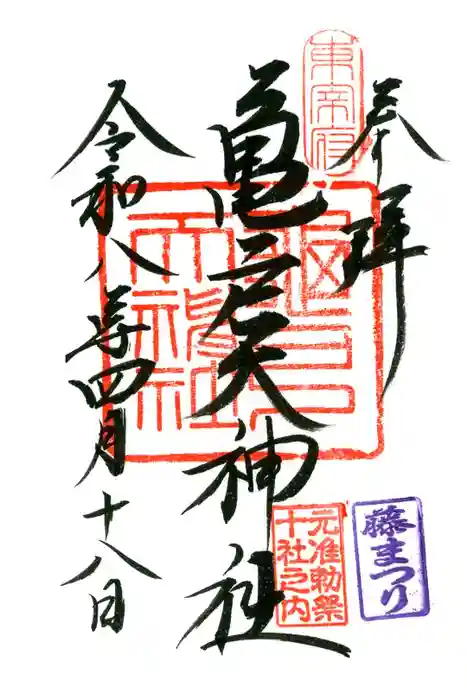 奉拝
東宰府
亀戸天神社
亀戸天神社
令和八年四月十八日
元准勅祭
十社之内
藤まつり